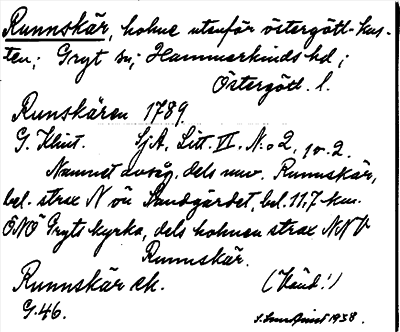 Runnskär, holme utanför östergötl. kus-
ten; Gryt sn; Hammarkinds hd;
Östergötl. l.
Runskären 1789.
G. Klint. SjA, Litt. II, N:o 2, 
Namnet avsåg. dels nuv. Runnskär,
bel. strax N om Sandgärdet, bel. 11,7 km.
ÖNÖ Gryts kyrka, dels holmen strax NNV
Runnskär.
Runnskär ek. (Vänd!)
G. 46. 1938.